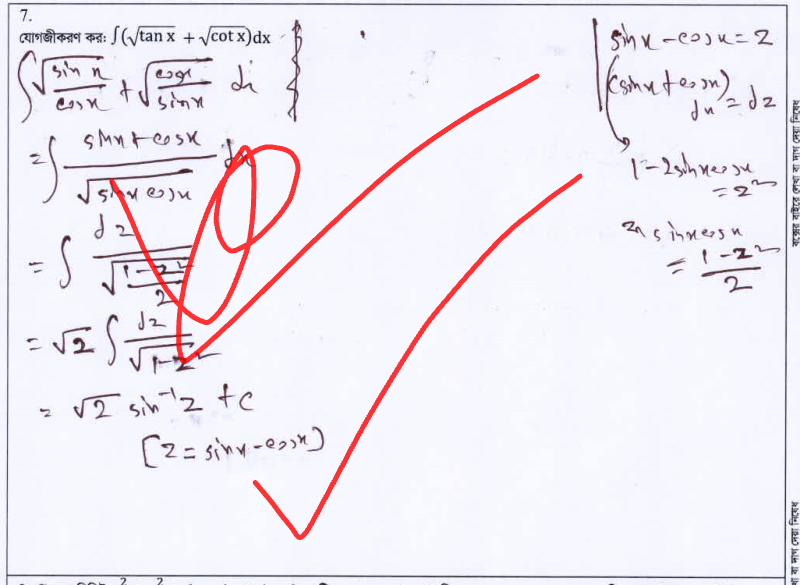 7.
যোগজীকরণ কর: ∫(√tan x + √cot x)dx
∫ √(sin x / cos x) + √(cos x / sin x) dx
= ∫ (sin x + cos x) / √(sin x cos x) dx
= ∫ dz / √((1-z²)/2)
= √2 ∫ dz / √(1-z²)
= √2 sin⁻¹ z + c
[z = sin x - cos x]
sin x - cos x = z
(sin x + cos x) dx = dz
1 - 2 sin x cos x = z²
sin x cos x
= (1-z²)/2
বক্সের বাইরে লেখা বা দাগ দেয়া নিষেধ
বা দাগ দেয়া নিষেধ